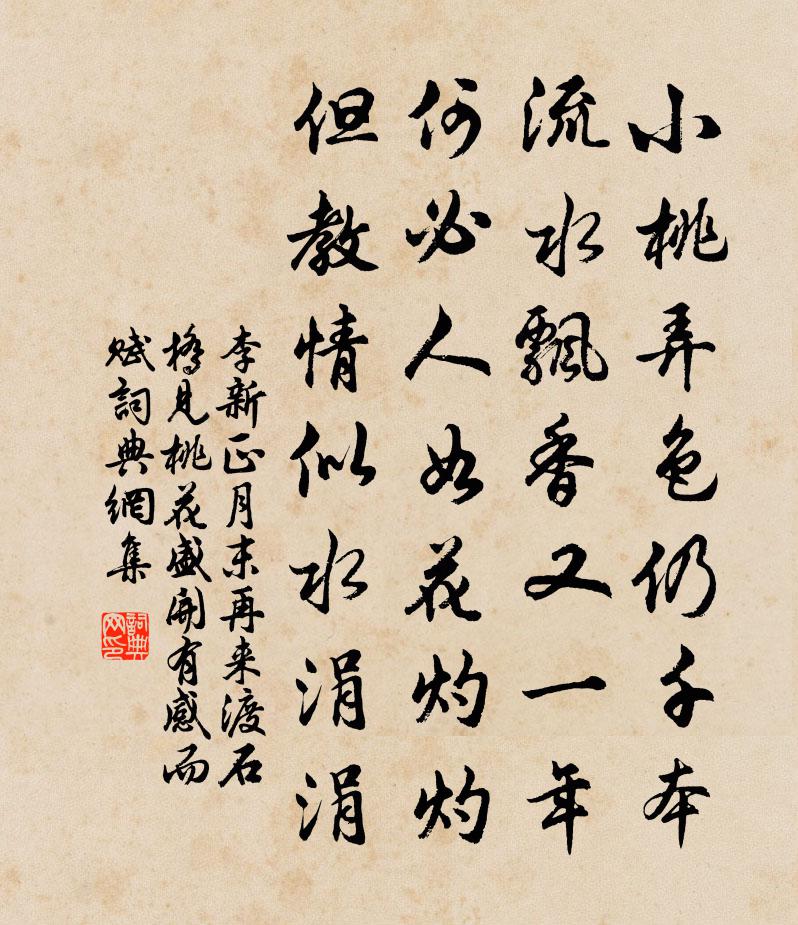 小桃弄色仍千本
流水飘香又一年
何必人如花灼灼
但教情似水涓涓
李新正月末再来渡石
桥见桃花盛开有感而
赋詞典網集
詞典
网印